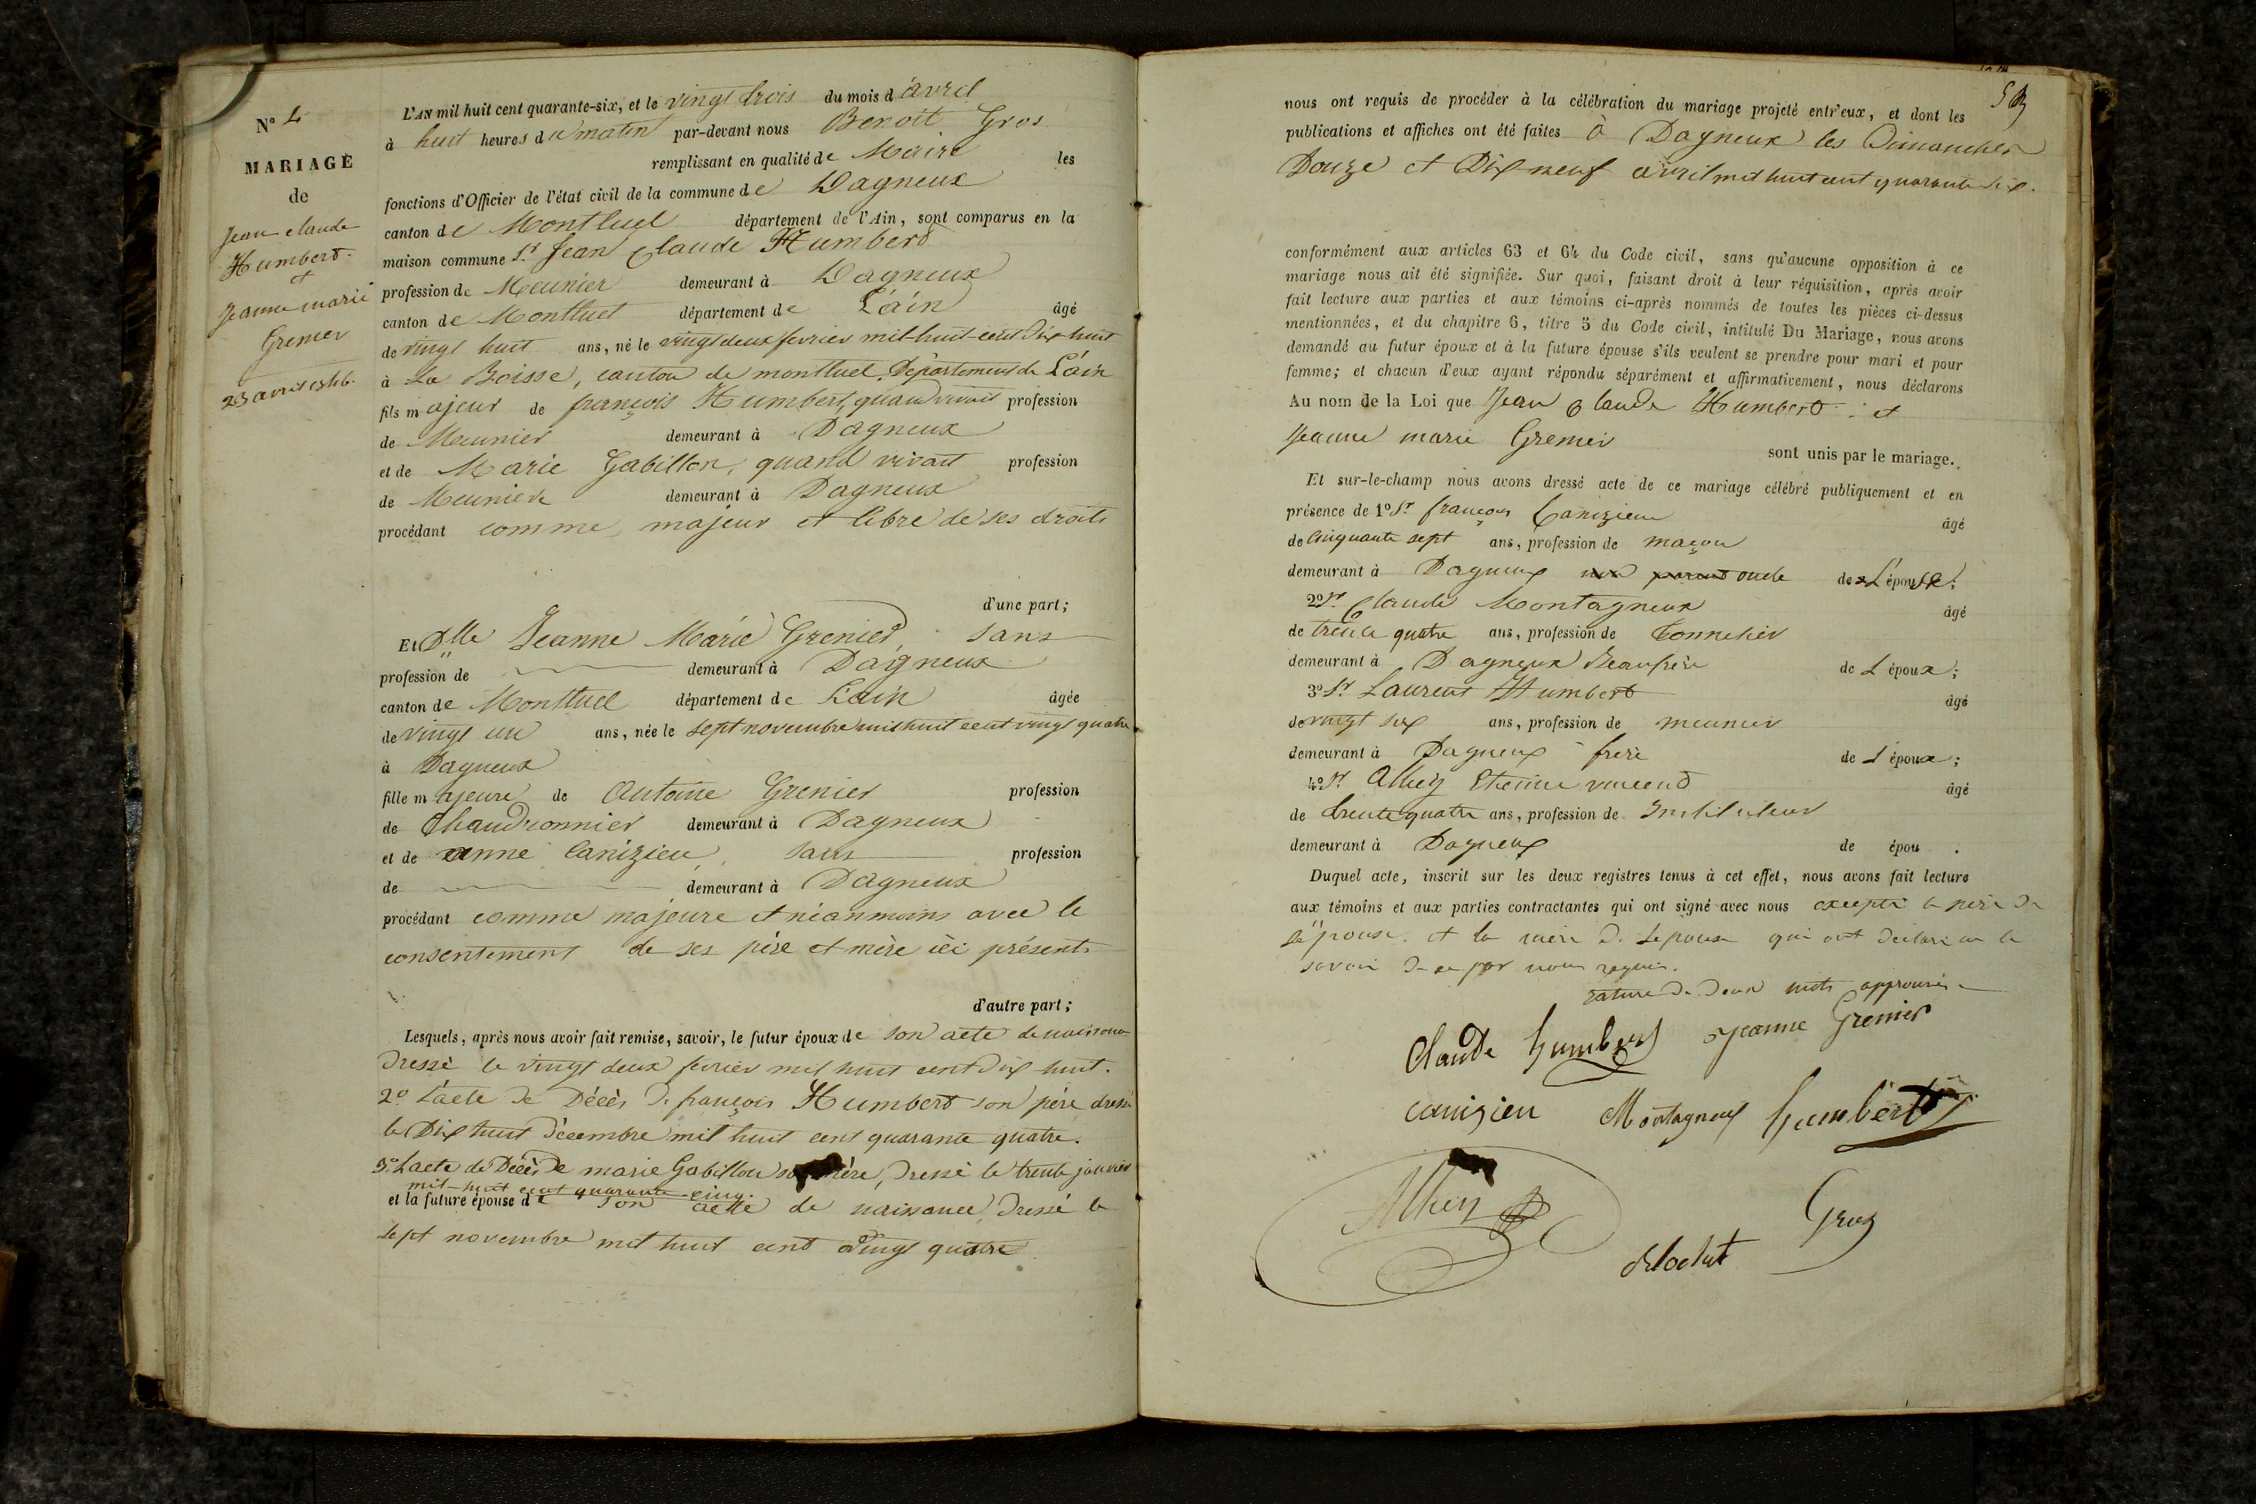 N° 4
MARIAGE
de
Jean claude
Humbert.
et
Jeanne marie
Grenier
23 avril 1846.
L'AN mil huit cent quarante-six, et le vingt trois du mois d'avril
à huit heures du matin par-devant nous Benoit Gros
remplissant en qualité de Maire les
fonctions d'Officier de l'état civil de la commune de Dagneux
canton de Montluel département de l'Ain, sont comparus en la
maison commune Sr Jean Claude Humbert
profession de Meunier demeurant à Dagneux
canton de Montluel département de L'áin âgé
de vingt huit ans, né le vingt deux fevrier mil-huit-cent dix-huit
à La Boisse, canton de montluel, Département de L'áin
fils majeur de françois Humbert, quand vivait profession
de Meunier demeurant à Dagneux
et de Marie Gabillon, quand vivait profession
de Meuniere demeurant à Dagneux
procédant comme, majeur et libre de ses droits
d'une part;
Et Dlle Jeanne Marie Grenier, sans
profession de demeurant à Dagneux
canton de Montluel département de L'ain âgée
de vingt un ans, née le sept novembre mil huit cent vingt quatre
à Dagneux
fille majeure de Antoine Grenier profession
de Chaudronnier demeurant à Dagneux
et de anne Canizieu, sans profession
de demeurant à Dagneux
procédant comme majeure et néanmoins avec le
consentement de ses père et mère ici présents
d'autre part;
Lesquels, après nous avoir fait remise, savoir, le futur époux de son acte de naissance
dressé le vingt deux fevrier mil huit cent dix huit.
2° L'acte de Décès de françois Humbert son père dressé
le Dix huit décembre mil huit cent quarante quatre.
3° L'acte de Décès de marie Gabillon sa mère, dressé le trente janvier
mil-huit cent quarante-cinq.
et la future épouse de son acte de naissance, dressé le
sept novembre mil huit cent vingt quatre.
5
nous ont requis de procéder à la célébration du mariage projeté entr'eux, et dont les
publications et affiches ont été faites à Dagneux les Dimanches
Douze et Dix neuf avril mil huit cent quarante six.
conformément aux articles 63 et 64 du Code civil, sans qu'aucune opposition à ce
mariage nous ait été signifiée. Sur quoi, faisant droit à leur réquisition, après avoir
fait lecture aux parties et aux témoins ci-après nommés de toutes les pièces ci-dessus
mentionnées, et du chapitre 6, titre 5 du Code civil, intitulé Du Mariage, nous avons
demandé au futur époux et à la future épouse s'ils veulent se prendre pour mari et pour
femme; et chacun d'eux ayant répondu séparément et affirmativement, nous déclarons
Au nom de la Loi que Jean Claude Humbert : et
Jeanne marie Grenier
sont unis par le mariage.
Et sur-le-champ nous avons dressé acte de ce mariage célébré publiquement et en
présence de 1° Sr françois Canizieu âgé
de cinquante sept ans, profession de maçon
demeurant à Dagneux non parent oncle de L'épouse:
2° Sr Claude Montagneux âgé
de trente quatre ans, profession de Tonnelier
demeurant à Dagneux Beaufrère de L'époux;
3° Sr Laurent Humbert âgé
de vingt six ans, profession de meunier
demeurant à Dagneux frere de L'époux;
4° Sr Etienne vincent âgé
de trente quatre ans, profession de Instituteur
demeurant à Dagneux de épou .
Duquel acte, inscrit sur les deux registres tenus à cet effet, nous avons fait lecture
aux témoins et aux parties contractantes qui ont signé avec nous excepté le père de
l'épouse. et la mère de l'epouse qui ont declaré ne le
savoir de ce par nous requis.
rature de deux mots approuvée
Claude humbert Jeanne Grenier
canizieu Montagneux humbert
Gros